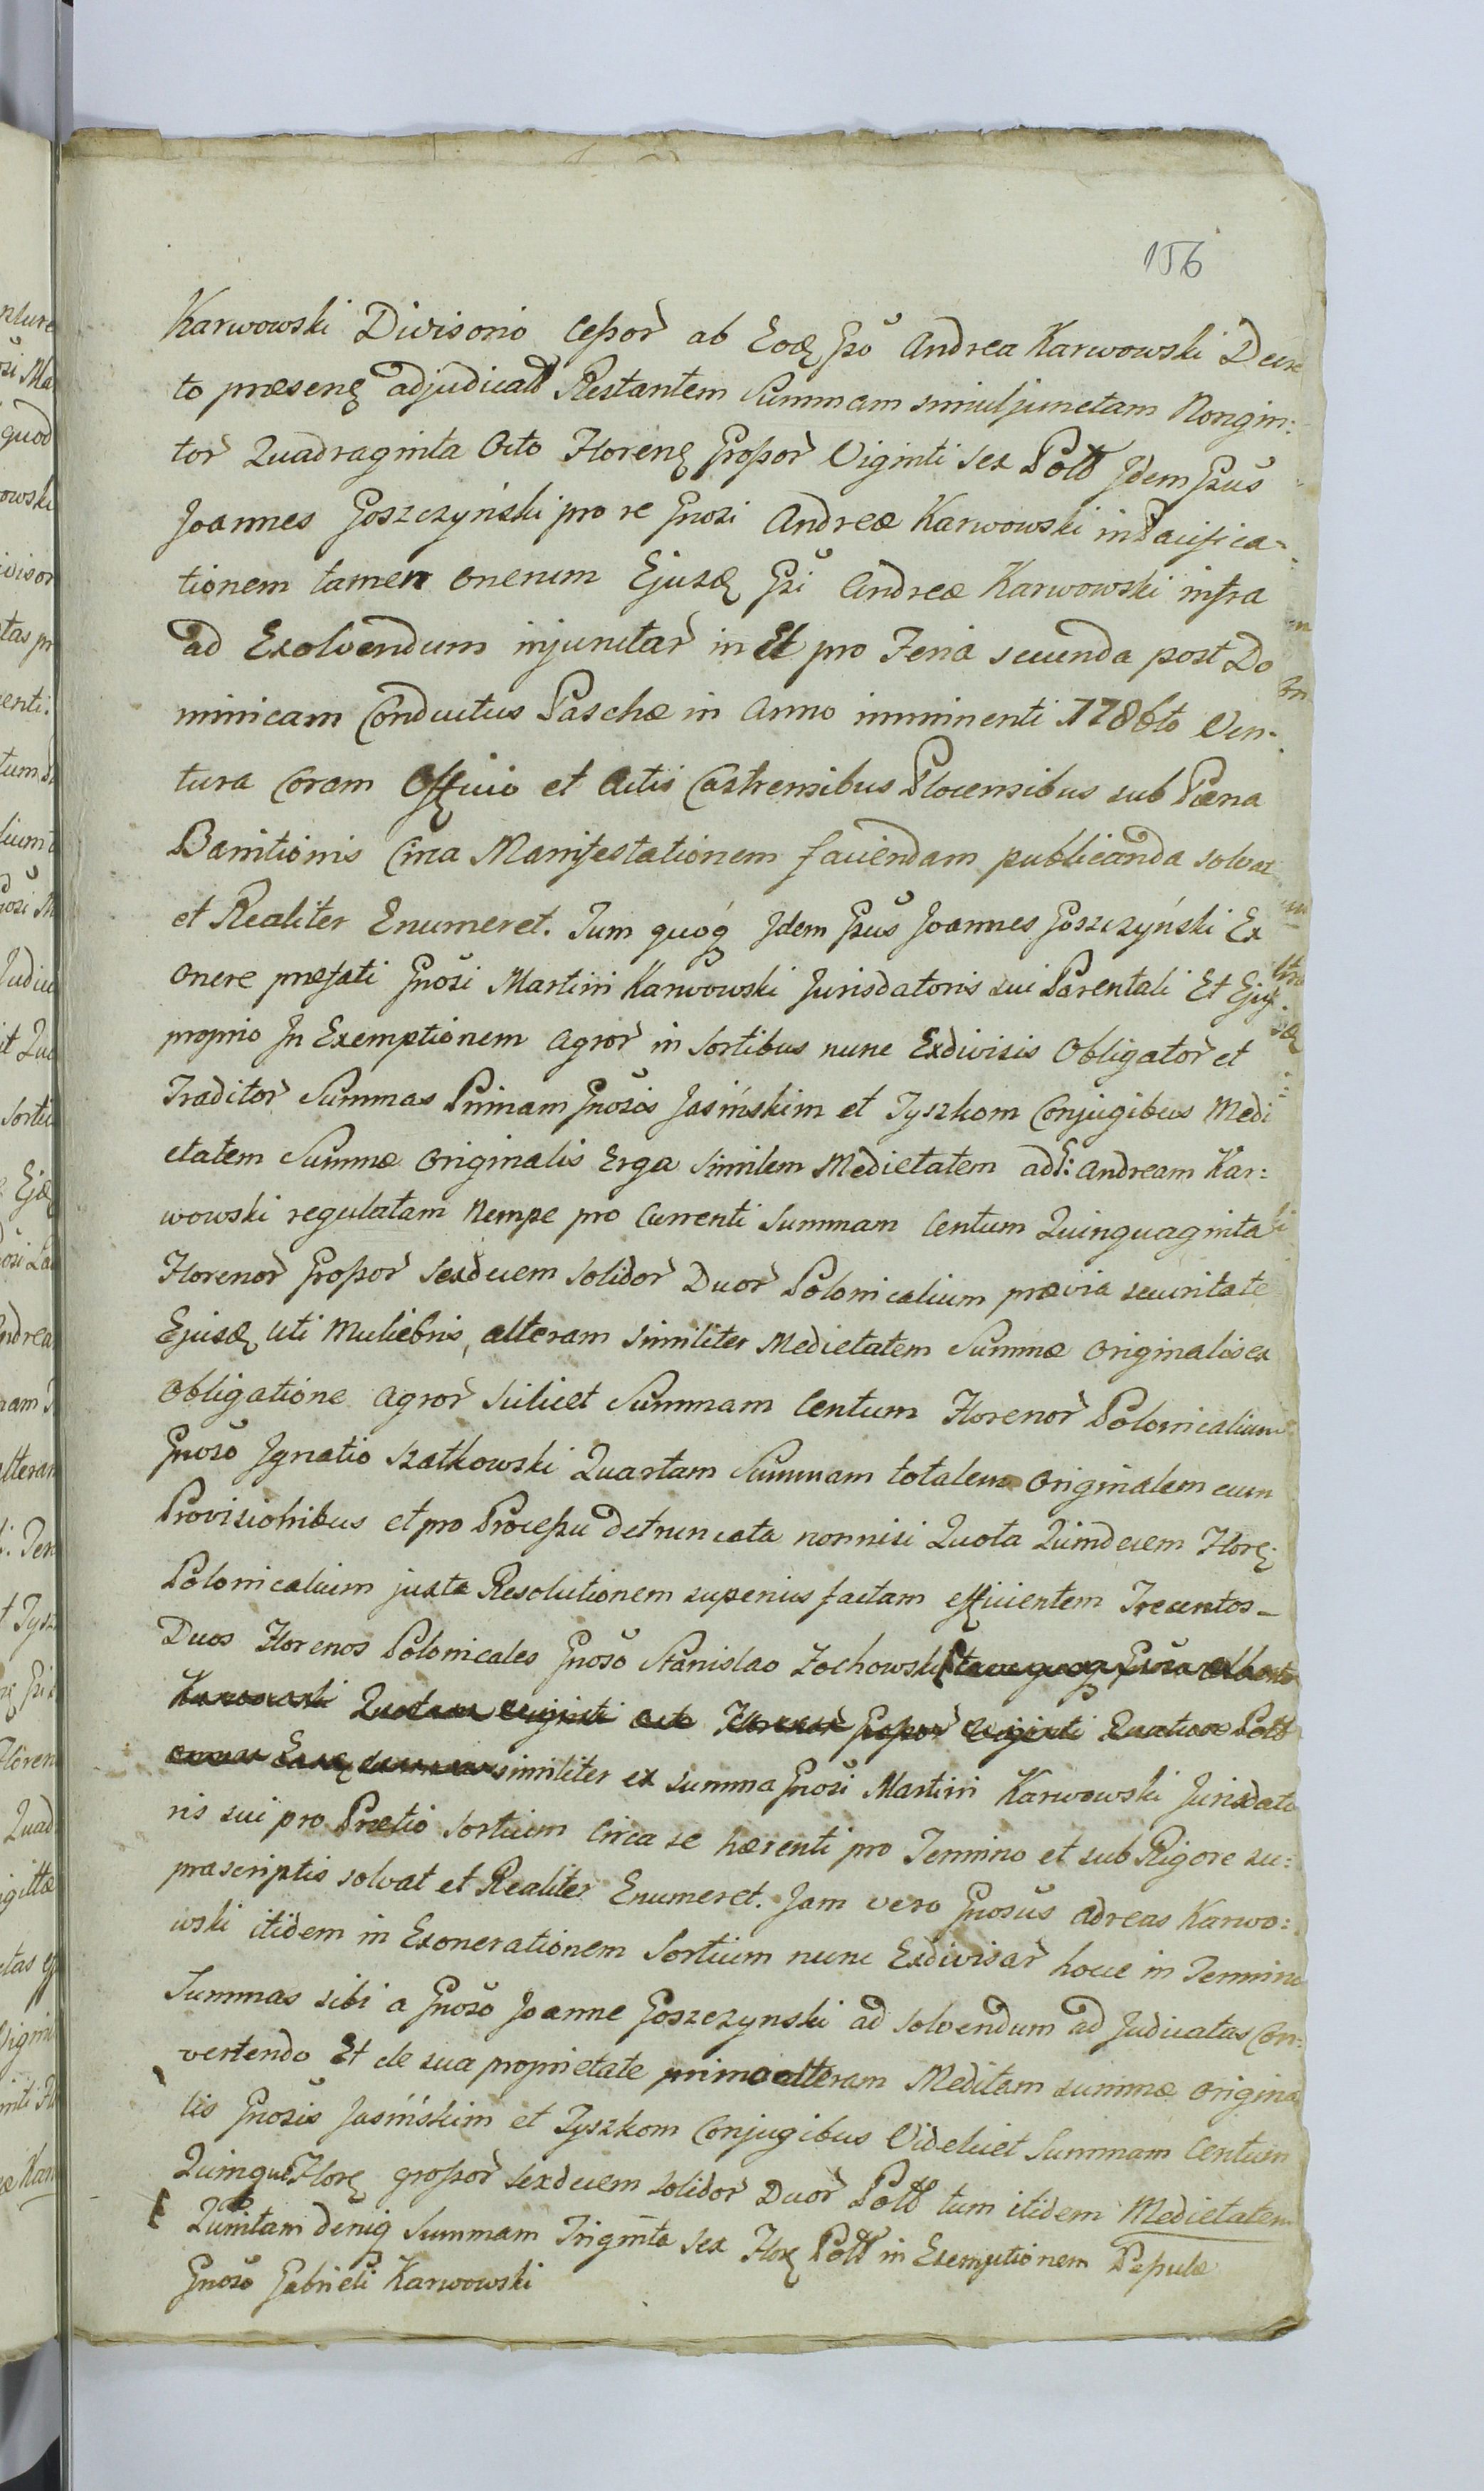 156
Karwowski Divisorio Cessor ab Eod Gso Andrea Karwowski Decre
to præsens adjudicatt Restantem Summam simul junctam Nongin:
tor Quadraginta Octo Floren Grossor Viginti Sex Poll Idem Gsus
Joannes Goszczyński pro re Gnosi Andreæ Karwowski in Pacifica=
tionem tamen onerum Ejusd Gsi Andreæ Karwowski infra
ad Exolvendum injunctar in Et pro Feria secunda post Do
minicam Conductus Paschæ in Anno imminenti 1786to Ven=
tura Coram Officio et Actis Castrensibus Plocensibus sub Pæna
Banitionis Circa Manifestationem faciendam publicanda solvat
et Realiter Enumeret. Tum quoq Idem Gsus Joannes Goszczyński Ex
Onere præfati Gnosi Martini Karwowski Jurisdatoris sui Parentali Et Ejus
proprio In Exemptionem Agror in Sortibus nunc Exdivisis Obligator et
Traditor Summas Primam Gnosis Jasińskim et Tyszkom Conjugibus Medi
etatem Summæ Originalis Erga Similem Medietatem ad G: Andream Kar=
wowski regulatam Nempe pro Currenti Summam Centum Quinquaginta
Florenor Grossor Sexdecem Solidor Duor Polonicalium prævia securitate
Ejusd uti Muliebris, alteram Similiter Medietatem Summæ Originalis ex
Obligatione Agror Scilicet Summam Centum Florenor Polonicalium
Gnoso Ignatio Szatkowski Quartam Summam totalem Originalem cum
Provisionibus et pro Processu detruncata nonnisi Quota Quindecem Flore
Polonicalium juxta Resolutionem superius factam efficientem Trecentos –
Duos Florenos Polonicales Gnoso Stanislao Żochowski
Karwowski Quotam viginti octo Florenor Grossor Viginti Quatuor Poll
similiter ex summa Gnosi Martini Karwowski Jurisdato
ris sui pro Prætio Sortium Circa se hærenti pro Termino et sub Rigore su=
præscriptis solvat et Realiter Enumeret. Jam vero Gnosus Adreas Karwo=
wski itidem in Exonerationem Sortium nunc Exdivisar hocce in Termino
Summas sibi a Gnoso Joanne Goszczynski ad solvendum adjudicatas Con=
vertendo Et de sua proprietate primo alteram Meditam summæ Origina
lis Gnosis Jasińskim et Tyszkom Conjugibus Videlicet Summam Centum
Quinque Flore grossor Sexdecem Solidor Duor Poll tum itidem Medietatem
Quintam deniq Summam Triginta Sex Flore Poll in Exemptionem
Gnoso Gabrieli Karwowski